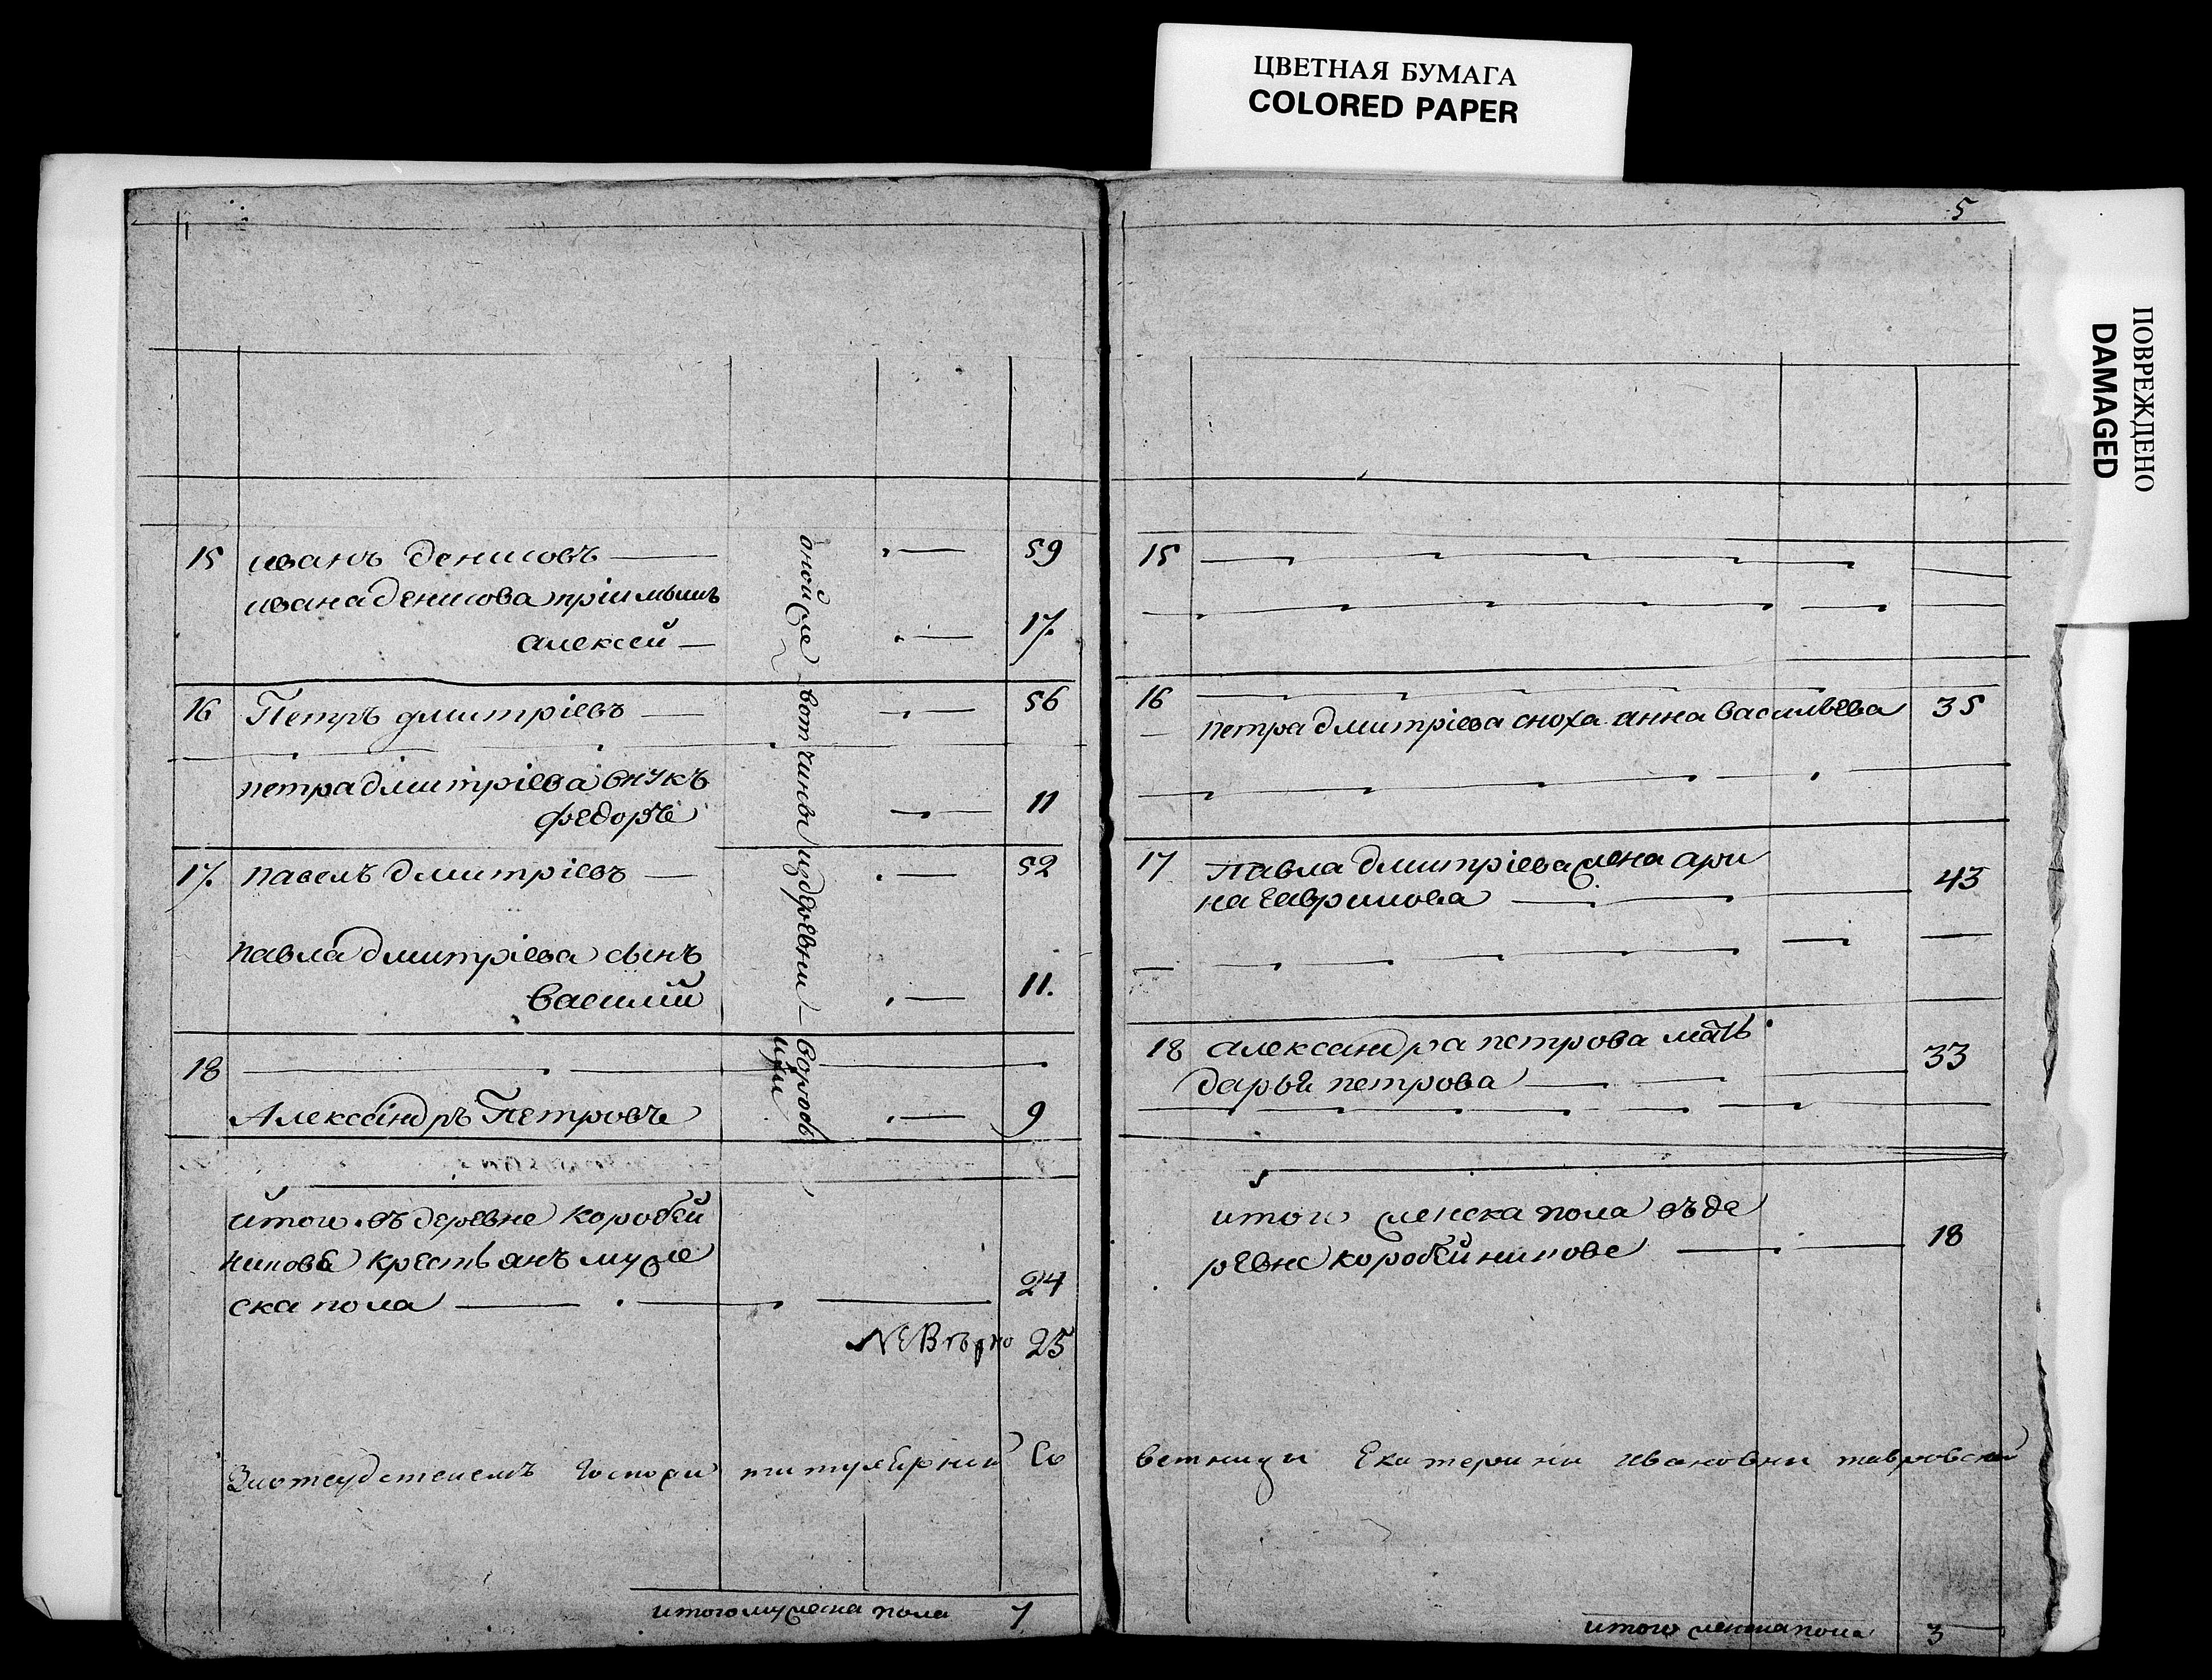 ЦВЕТНАЯ БУМАГА
COLORED PAPER
ПОВРЕЖДЕНО
DAMAGED
15 иванъ денисовъ 59
ивана денисова пріимышъ
алексей 17.
16 Петръ дмитріевъ 56
петра дмитріева внукъ
федоръ 11
17. павелъ дмитріевъ 52
павла дмитріева сынъ
василій 11.
18
Александръ Петровъ 9
оной же вотчины из деревни
итого въ деревне коробей
никове крестьянъ муже
ска пола 24
NEВѣрно 25
титулярной Со
итого мужеска пола 7
5
15
16
петра дмитріева сноха анна васильева 35
17 павла дмитріева жена ари
на гаврилова 43
18 александра петрова мать
дарья петрова 33
итого женска пола въ де
ревне коробейникове 18
ветници Екатерини Ивановни
итого женска пола 3